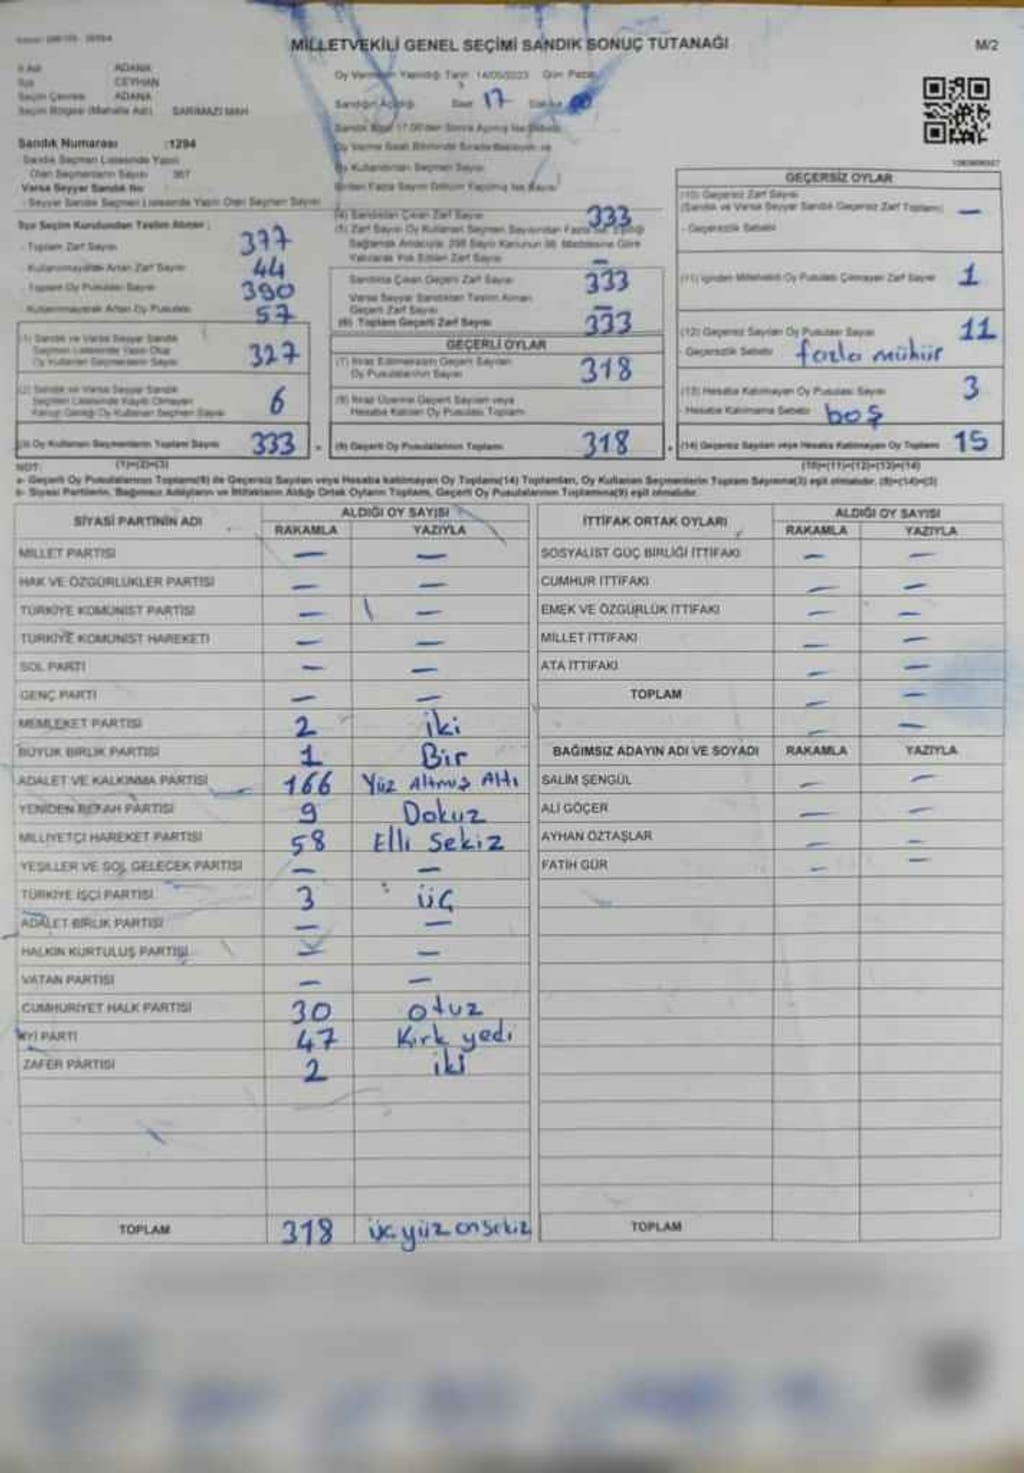 MİLLETVEKİLİ GENEL SEÇİMİ SANDIK SONUÇ TUTANAĞI
M/2
İl Adı ADANA
İlçe CEYHAN
Seçim Çevresi ADANA
Seçim Bölgesi (Mahalle Adı) SARIMAZI MAH
Oy Vermenin Yapıldığı Tarih 14/05/2023 Gün Pazar
Sandığın Açıldığı Saat 17 Dakika 00
Sandık Numarası :1294
Sandık Seçmen Listesinde Yazılı
Olan Seçmenlerin Sayısı 367
Varsa Seyyar Sandık No
- Seyyar Sandık Seçmen Listesinde Yazılı Olan Seçmen Sayısı
İlçe Seçim Kurulundan Teslim Alınan ;
- Toplam Zarf Sayısı 377
- Kullanılmayarak Artan Zarf Sayısı 44
Toplam Oy Pusulası Sayısı 390
- Kullanılmayarak Artan Oy Pusulası 57
(1) Sandık ve Varsa Seyyar Sandık
Seçmen Listesinde Yazılı Olup
Oy Kullanan Seçmenlerin Sayısı 327
(2) Sandık ve Varsa Seyyar Sandık
Seçmen Listesinde Kaydı Olmayan
Kanun Gereği Oy Kullanan Seçmen Sayısı 6
(3) Oy Kullanan Seçmenlerin Toplam Sayısı 333
(1)+(2)=(3)
(4) Sandıktan Çıkan Zarf Sayısı 333
(5) Zarf Sayısı Oy Kullanan Seçmen Sayısından Fazla ise, Eşitliği
Sağlamak Amacıyla, 298 Sayılı Kanunun 98. Maddesine Göre
Yakılarak Yok Edilen Zarf Sayısı —
Sandıkta Çıkan Geçerli Zarf Sayısı 333
Varsa Seyyar Sandıktan Teslim Alınan
Geçerli Zarf Sayısı —
(6) Toplam Geçerli Zarf Sayısı 333
GEÇERLİ OYLAR
(7) İtiraz Edilmeksizin Geçerli Sayılan
Oy Pusulalarının Sayısı 318
(8) İtiraz Üzerine Geçerli Sayılan veya
Hesaba Katılan Oy Pusulası Toplamı
(9) Geçerli Oy Pusulalarının Toplamı 318
GEÇERSİZ OYLAR
(10) Geçersiz Zarf Sayısı
(Sandık ve Varsa Seyyar Sandık Geçersiz Zarf Toplamı) —
- Geçersizlik Sebebi
(11) İçinden Milletvekili Oy Pusulası Çıkmayan Zarf Sayısı 1
(12) Geçersiz Sayılan Oy Pusulası Sayısı 11
- Geçersizlik Sebebi fazla mühür
(13) Hesaba Katılmayan Oy Pusulası Sayısı 3
- Hesaba Katılmama Sebebi boş
(14) Geçersiz Sayılan veya Hesaba Katılmayan Oy Toplamı 15
(10)+(11)+(12)+(13)=(14)
NOT:
a- Geçerli Oy Pusulalarının Toplamı(9) ile Geçersiz Sayılan veya Hesaba katılmayan Oy Toplamı(14) Toplamları, Oy Kullanan Seçmenlerin Toplam Sayısına(3) eşit olmalıdır. (9)+(14)=(3)
b- Siyasi Partilerin, Bağımsız Adayların ve İttifakların Aldığı Ortak Oyların Toplamı, Geçerli Oy Pusulalarının Toplamına(9) eşit olmalıdır.
SİYASİ PARTİNİN ADI ALDIĞI OY SAYISI
RAKAMLA YAZIYLA
MİLLET PARTİSİ — —
HAK VE ÖZGÜRLÜKLER PARTİSİ — —
TÜRKİYE KOMÜNİST PARTİSİ — —
TÜRKİYE KOMÜNİST HAREKETİ — —
SOL PARTİ — —
GENÇ PARTİ — —
MEMLEKET PARTİSİ 2 iki
BÜYÜK BİRLİK PARTİSİ 1 Bir
ADALET VE KALKINMA PARTİSİ 166 Yüz Altmış Altı
YENİDEN REFAH PARTİSİ 9 Dokuz
MİLLİYETÇİ HAREKET PARTİSİ 58 Elli Sekiz
YEŞİLLER VE SOL GELECEK PARTİSİ — —
TÜRKİYE İŞÇİ PARTİSİ 3 üç
ADALET BİRLİK PARTİSİ — —
HALKIN KURTULUŞ PARTİSİ — —
VATAN PARTİSİ — —
CUMHURİYET HALK PARTİSİ 30 otuz
İYİ PARTİ 47 Kırk yedi
ZAFER PARTİSİ 2 iki
TOPLAM 318 üç yüz on sekiz
İTTİFAK ORTAK OYLARI ALDIĞI OY SAYISI
RAKAMLA YAZIYLA
SOSYALİST GÜÇ BİRLİĞİ İTTİFAKI — —
CUMHUR İTTİFAKI — —
EMEK VE ÖZGÜRLÜK İTTİFAKI — —
MİLLET İTTİFAKI — —
ATA İTTİFAKI — —
TOPLAM — —
BAĞIMSIZ ADAYIN ADI VE SOYADI RAKAMLA YAZIYLA
SALİM ŞENGÜL — —
ALİ GÖÇER — —
AYHAN ÖZTAŞLAR — —
FATİH GÜR — —
TOPLAM